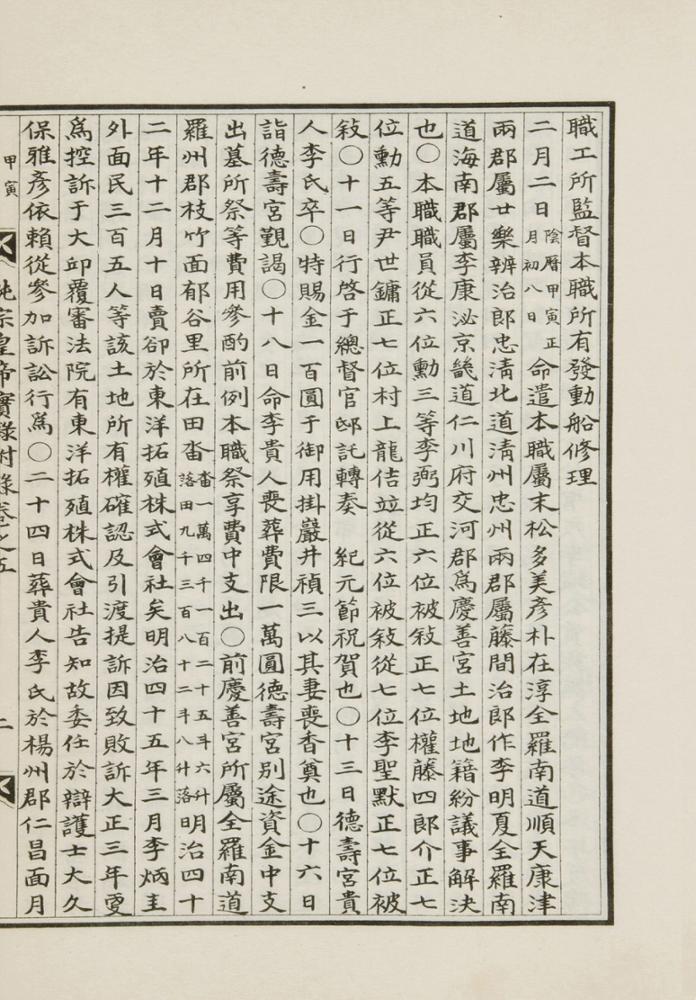 職工所監督本職所有發動船修理
二月二日陰曆甲寅正月初八日命遣本職屬末松多美彦朴在淳全羅南道順天康津
兩郡屬廿樂辨治郎忠淸北道淸州忠州兩郡屬藤間治郎作李明夏全羅南
道海南郡屬李康泌京畿道仁川府交河郡爲慶善宮土地地籍紛議事解決
也〇本職職員從六位勳三等李弼均正六位被敍正七位權藤四郎介正七
位勳五等尹世鏞正七位村上龍佶竝從六位被敍從七位李聖默正七位被
敍〇十一日行啓于總督官邸託轉奏 紀元節祝賀也〇十三日德壽宮貴
人李氏卒〇特賜金一百圓于御用掛嚴井禎三以其妻喪香奠也〇十六日
詣德壽宮覲謁〇十八日命李貴人喪葬費限一萬圓德壽宮別途資金中支
出墓所祭等費用參酌前例本職祭享費中支出〇前慶善宮所屬全羅南道
羅州郡枝竹面郁谷里所在田畓畓一萬四千一百二十五斗六升落田九千三百八十二斗八升落明治四十
二年十二月十日賣卻於東洋拓殖株式會社矣明治四十五年三月李炳圭
外面民三百五人等該土地所有權確認及引渡提訴因致敗訴大正三年更
爲控訴于大邱覆審法院有東洋拓殖株式會社告知故委任於辯護士大久
保雅彦依賴從參加訴訟行爲〇二十四日葬貴人李氏於楊州郡仁昌面月
甲寅 純宗皇帝實錄附錄卷之五 二